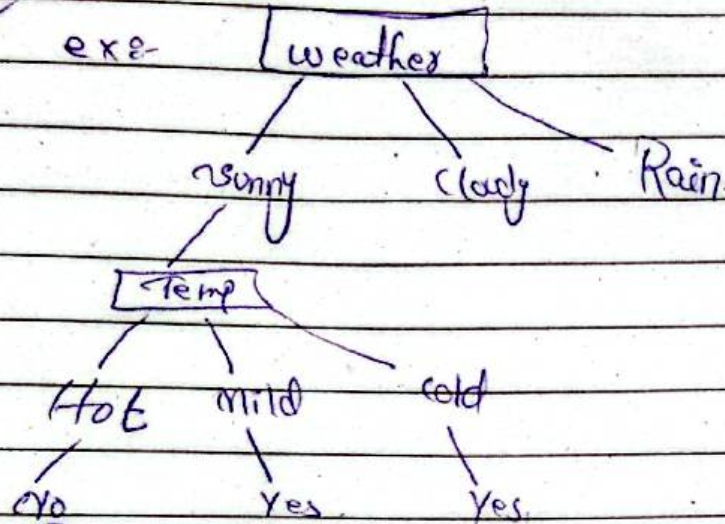 ex:- weather
Sunny Cloudy Rain
Temp
Hot Mild cold
No Yes Yes